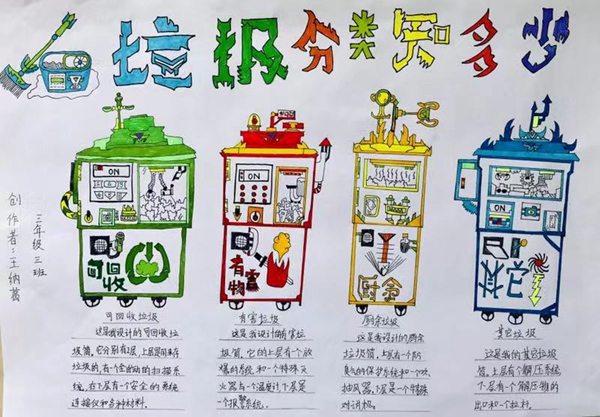 垃圾分类知多少
创作者:王纳菖
三年级三班
ON
可回收
ON
有害物
厨余
其它
可回收垃圾
这是我设计的可回收垃
圾筒,它分别有2层,上层是用来存
垃圾的,有一个全自动的扫描系
统,在下层有一个安全的系统
连接仪和各种材料.
有害垃圾
这是我设计的有害垃
圾筒,它的上层有一个放
爆的系统和一个特殊灭
火器有一个温度计下层是
一个报警系统.
厨余垃圾
这是我设计的厨余
垃圾筒,上层有一个防
臭的保护系统和一个吹
抽风器,下层是一个特殊
对讲机.
其它垃圾
这是我的其它垃圾
筒,上层有个解压系统
下层有个解压物的
出口和一个拉杆.